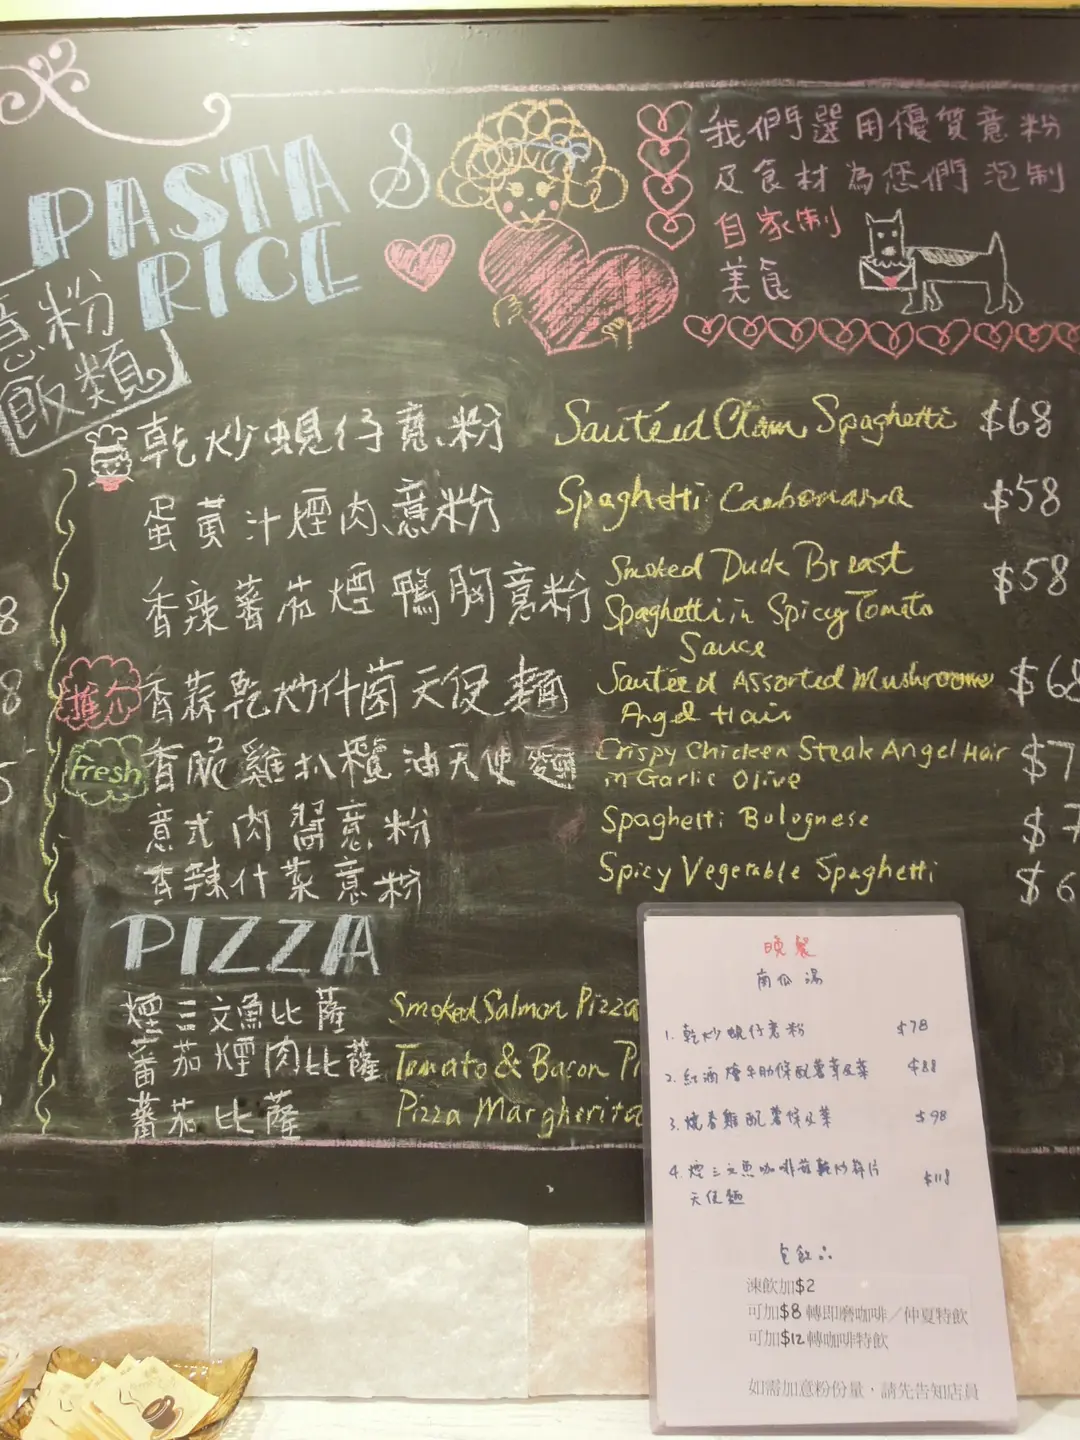 PASTA &
RICE
意粉
飯類
我們選用優質意粉
及食材為您們泡制
自家制
美食
乾炒蜆仔意粉 Sautéed Clam Spaghetti $68
蛋黃汁煙肉意粉 Spaghetti Carbonara $58
香辣蕃茄煙鴨胸意粉 Smoked Duck Breast $58
Spaghetti in Spicy Tomato
Sauce
推介 香蒜乾炒什菌天使麵 Sautéed Assorted Mushrooms $68
Angel Hair
Fresh 香脆雞扒欖油天使麵 Crispy Chicken Steak Angel Hair $7
in Garlic Olive
意式肉醬意粉 Spaghetti Bolognese $7
香辣什菜意粉 Spicy Vegetable Spaghetti $6
8
8
5
PIZZA
煙三文魚比薩 Smoked Salmon Pizza
蕃茄煙肉比薩 Tomato & Bacon Pi
蕃茄比薩 Pizza Margherita
晚餐
南瓜湯
1. 乾炒蜆仔意粉 $78
2. 紅酒燴牛肋條配薯蓉及菜 $88
3. 燒春雞配薯條及菜 $98
4. 煙三文魚咖啡菇乾炒蒜片 $118
天使麵
包飲品
凍飲加$2
可加$8轉即磨咖啡／仲夏特飲
可加$12轉咖啡特飲
如需加意粉份量，請先告知店員